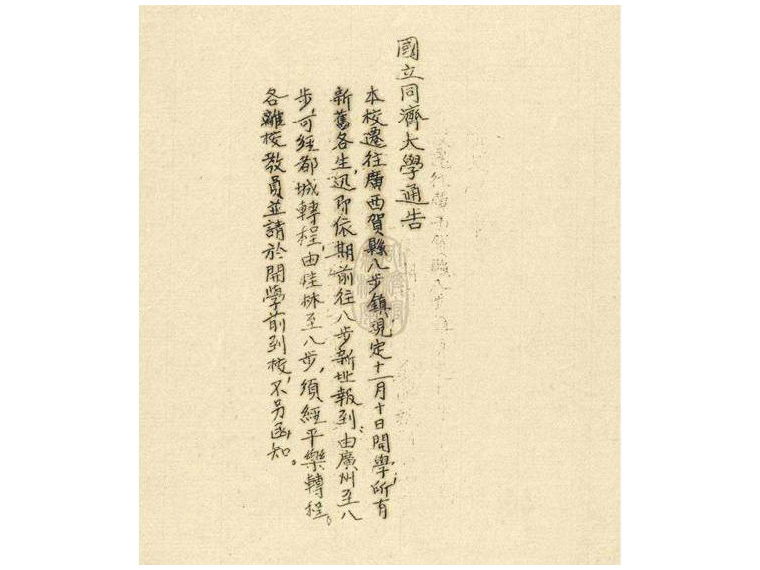 國立同濟大學通告
本校遷往廣西賀縣八步鎮，現定十一月十日開學，所有
新舊各生，迅即依期前往八步新址報到，由廣州至八
步，可經都城轉程，由桂林至八步，須經平樂轉程。
各離校教員並請於開學前到校，不另函知。